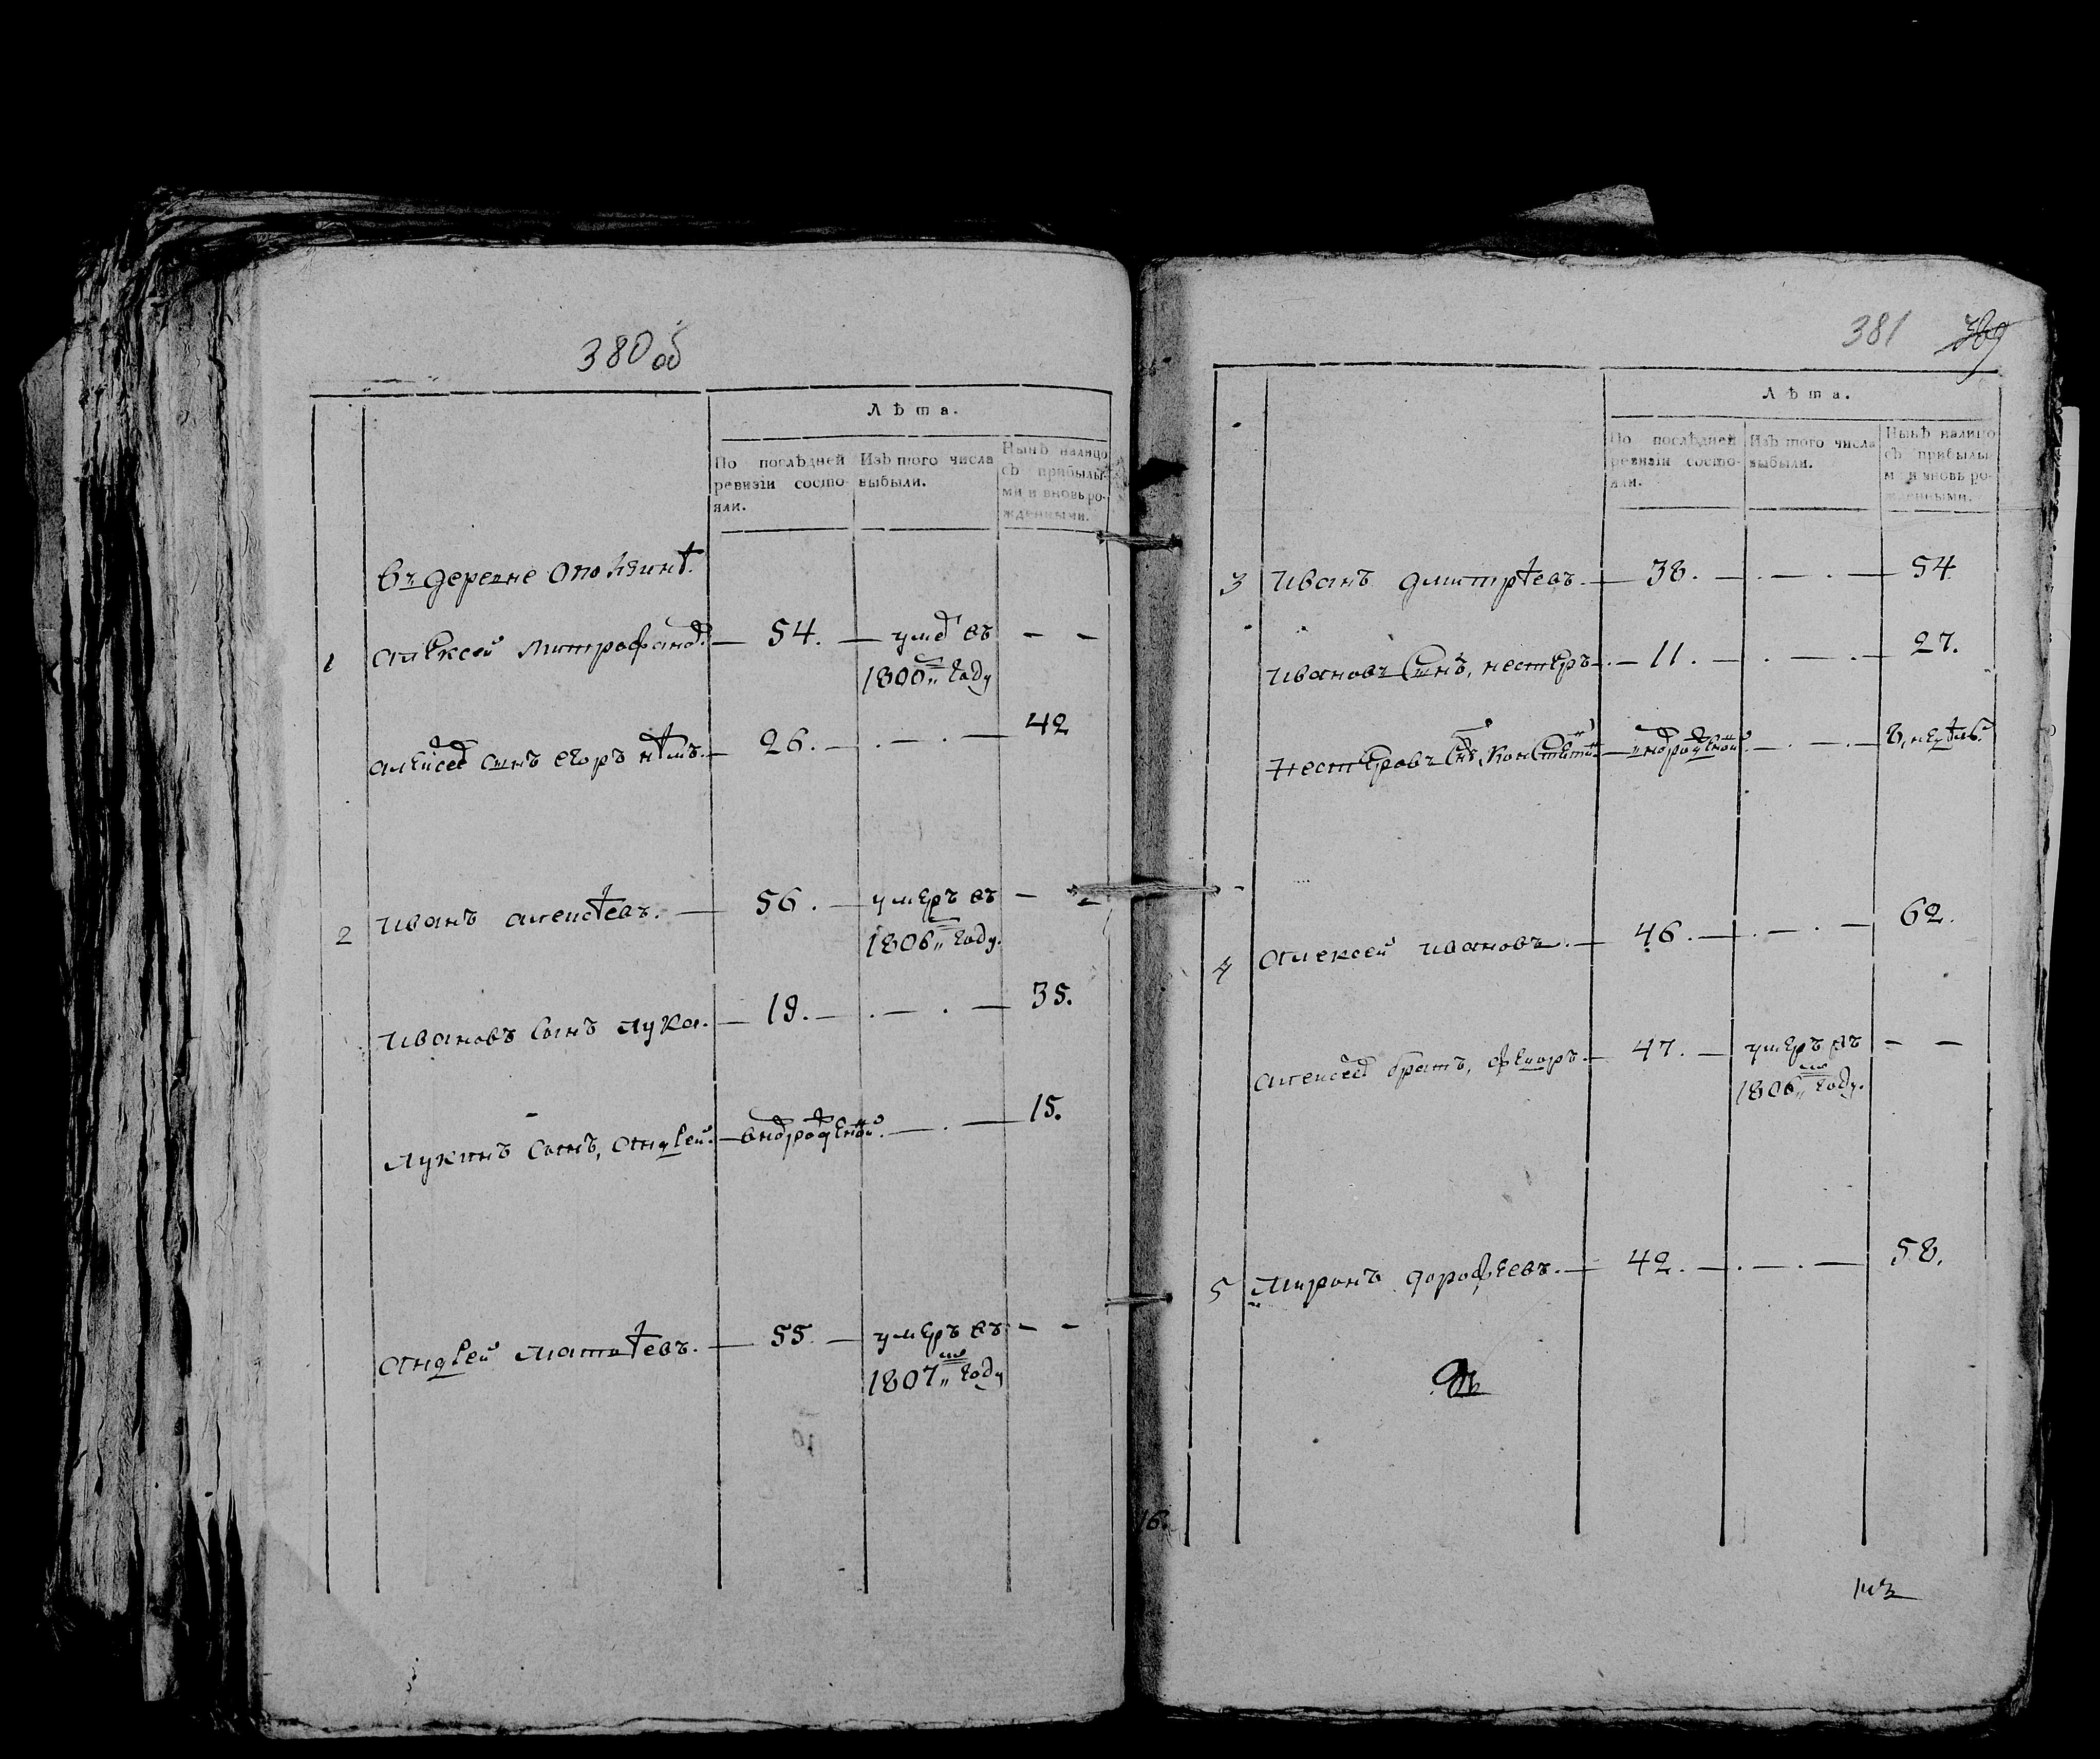 380 об
Лѣта.
По послѣдней ревизіи состояли.
Изъ того числа выбыли.
Нынѣ налицо съ прибылыми и вновь рожденными.
въ деревне
1 Алексей Митрофанов. — 54. — умер въ — —
1800 году
Алексеев сынъ Егоръ нѣмъ. — 26. — . — . — 42
2 Иванъ Алексѣевъ. — 56. — умеръ въ —
1806 году.
Ивановъ сынъ Лука. — 19. — . — . — 35.
Лукинъ сынъ, Андрей. — вновьрожденной. — . — 15.
Андрей Матвѣевъ. — 55 — умеръ въ — —
1807 году
381 389
Лѣта.
По послѣдней ревизіи состояли.
Изъ того числа выбыли.
Нынѣ налицо съ прибылыми и вновь рожденными.
3 Иванъ Дмитрѣевъ. — 38. — . — . — 54
Ивановъ сынъ, Нестеръ — 11. — . — . — 27.
Нестеровъ сынъ, — вновьрожденной. — . — . —
4 Алексей Ивановъ. — 46. — . — . — 62.
Алексеев братъ, Федоръ. — 47. — умеръ въ — —
1806 году.
5 Миронъ Дорофеевъ. — 42. — . — . — 58.
16.